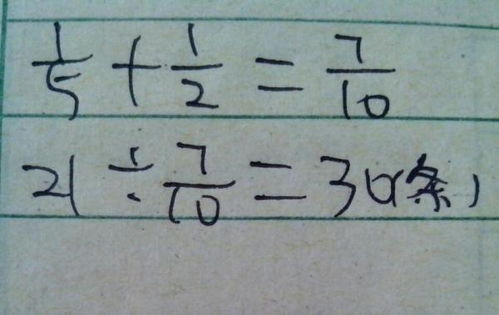 1/5 + 1/2 = 7/10
21 ÷ 7/10 = 30(条)